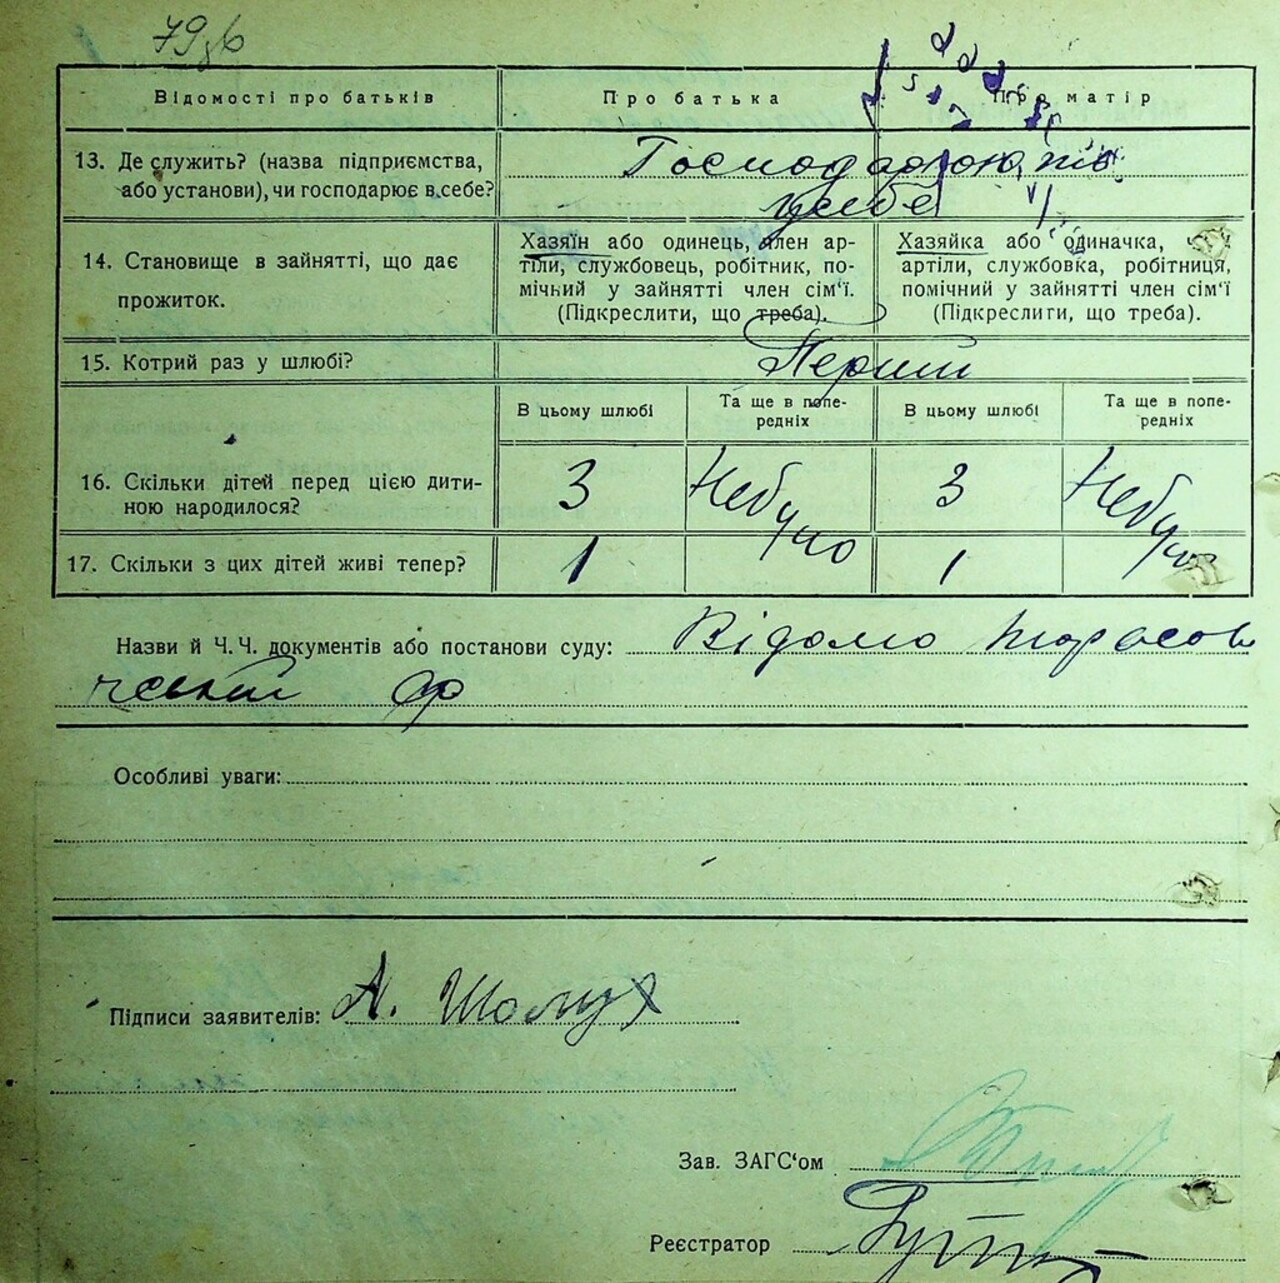 79зв
Відомості про батьків Про батька Про матір
13. Де служить? (назва підприємства, або установи), чи господарює в себе?
Господарюють
у себе
14. Становище в зайнятті, що дає прожиток.
Хазяїн або одинець, член ар-
тіли, службовець, робітник, по-
мічний у зайнятті член сім‘ї.
(Підкреслити, що треба).
Хазяйка або одиначка,
артіли, службовка, робітниця,
помічний у зайнятті член сім‘ї
(Підкреслити, що треба).
15. Котрий раз у шлюбі? Перший
В цьому шлюбі Та ще в попе-
редніх В цьому шлюбі Та ще в попе-
редніх
16. Скільки дітей перед цією дити-
ною народилося? 3 Небуло 3 Небуло
17. Скільки з цих дітей живі тепер? 1 1
Назви й Ч.Ч. документів або постанови суду: Відомо
Особливі уваги:
Підписи заявителів: А. Шолух
Зав. ЗАГС‘ом
Реєстратор